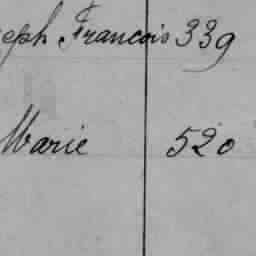 eph Francois 339
Marie 520